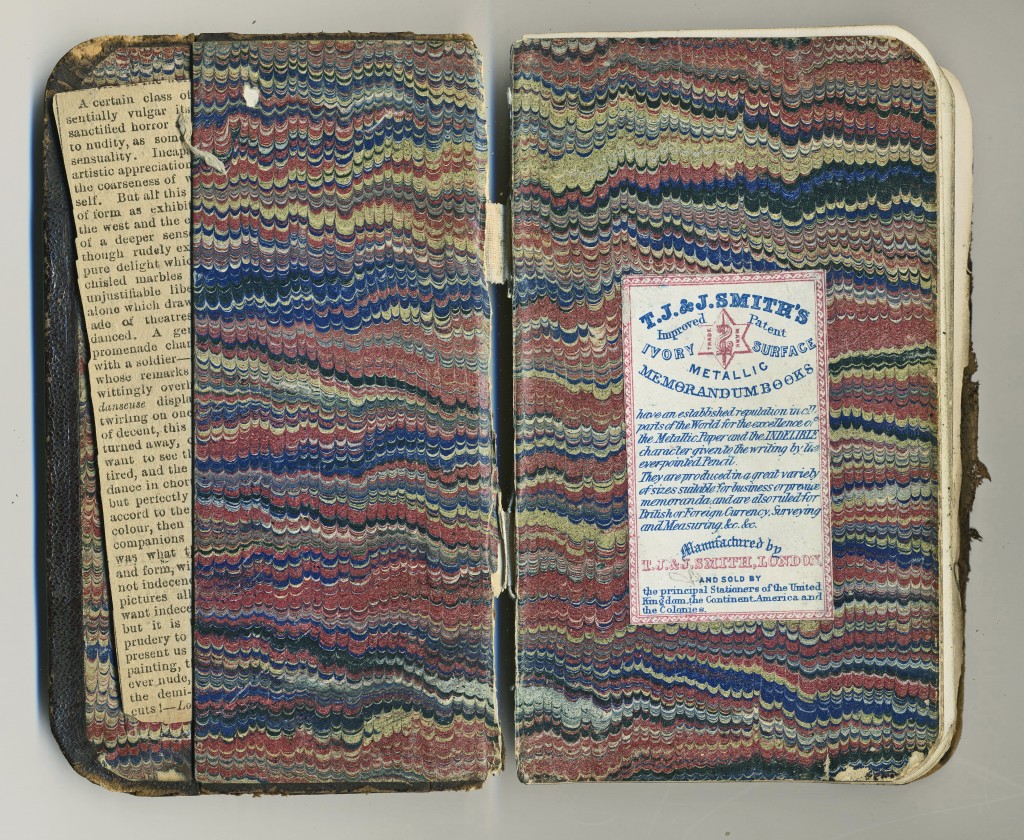 A certain class of
sentially vulgar its
sanctified horror
to nudity, as som
sensuality. Incapa
artistic appreciation
the coarseness of
self. But all this
of form as exhibi
the west and the
of a deeper sens
though rudely ex
pure delight whic
chisled marbles
unjustifiable libe
alone which draw
ade of theatres
danced. A gen
promenade chan
with a soldier—
whose remarks
wittingly overh
danseuse displa
twirling on one
of decent, this
turned away,
want to see th
tired, and the
dance in chor
but perfectly
accord to the
colour, then
companions
was what t
and form, wi
not indecen
pictures all
want indece
but it is
prudery to
present us
painting, t
ever nude,
the demi-
cuts!—Lo
T.J. & J. SMITH'S
Improved Patent
TRADE MARK
IVORY SURFACE
METALLIC
MEMORANDUM BOOKS
have an established reputation in all
parts of the World for the excellence of
the Metallic Paper and the INDELIBLE
character given to the writing by the
everpointed Pencil.
They are produced in a great variety
of sizes suitable for business or private
memoranda, and are also ruled for
British or Foreign Currency, Surveying
and Measuring, &c. &c.
Manufactured by
T.J. & J. SMITH, LONDON,
AND SOLD BY
the principal Stationers of the United
Kingdom, the Continent, America and
the Colonies.